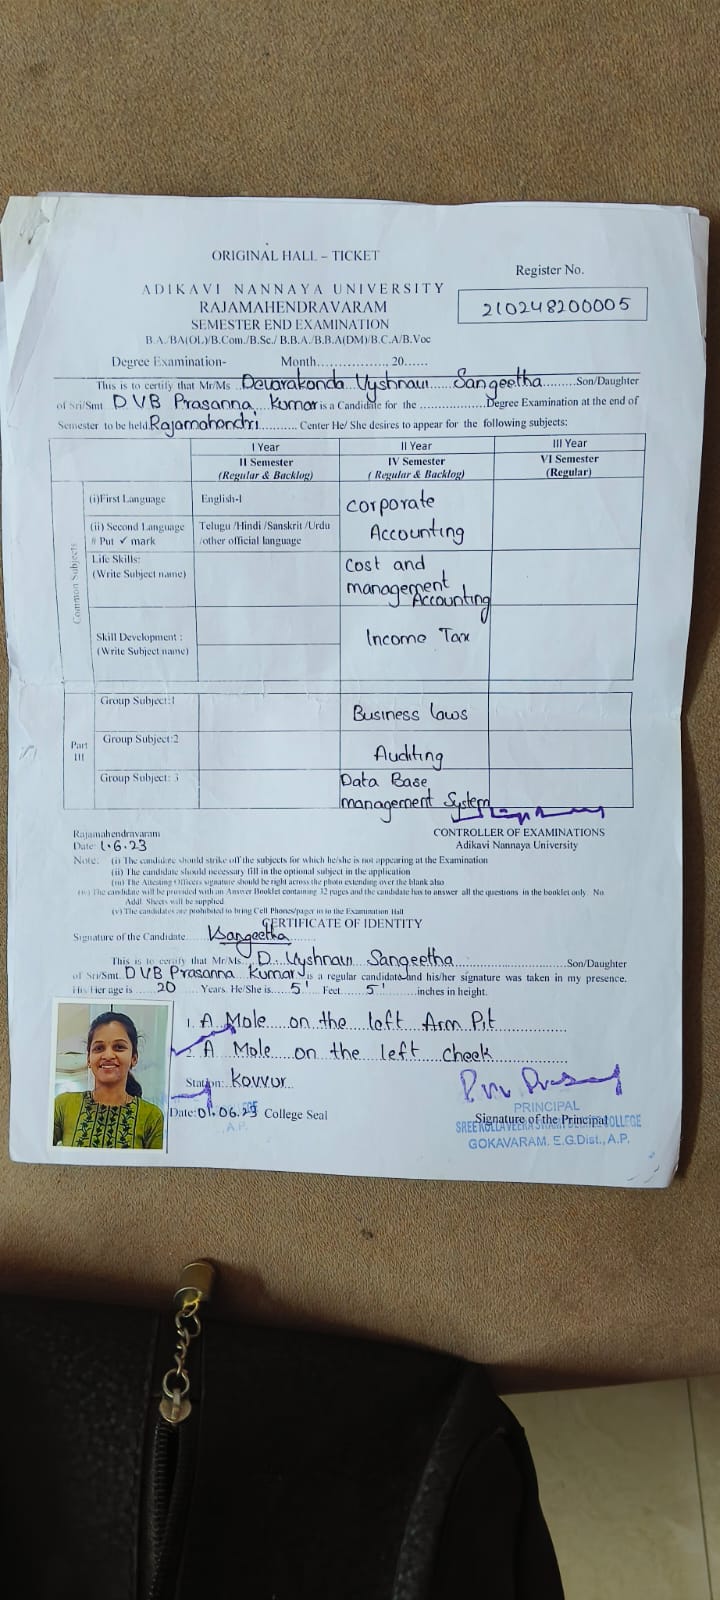 ORIGINAL HALL – TICKET
Register No.
ADIKAVI NANNAYA UNIVERSITY
210248200005
RAJAMAHENDRAVARAM
SEMESTER END EXAMINATION
B.A./BA(OL)/B.Com./B.Sc./ B.B.A./B.B.A(DM)/B.C.A/B.Voc
Degree Examination- Month.................20......
This is to certify that Mr/Ms ..Devarakonda Vyshnavi Sangeetha.........Son/Daughter
of Sri/Smt DVB Prasanna Kumar is a Candidate for the .................Degree Examination at the end of
Semester to be held Rajamahendri.......... Center He/ She desires to appear for the following subjects:
I Year II Year III Year
II Semester IV Semester VI Semester
(Regular & Backlog) ( Regular & Backlog) (Regular)
Common Subjects
(i)First Language English-I Corporate
(ii) Second Language Telugu /Hindi /Sanskrit /Urdu Accounting
# Put ✓ mark /other official language
Life Skills: Cost and
(Write Subject name) management
Accounting
Skill Development : Income Tax
(Write Subject name)
Part III
Group Subject:1 Business laws
Group Subject:2 Auditing
Group Subject: 3 Data Base
management System
Rajamahendravaram CONTROLLER OF EXAMINATIONS
Date: 1.6.23 Adikavi Nannaya University
Note: (i) The candidate should strike off the subjects for which he/she is not appearing at the Examination
(ii) The candidate should necessary fill in the optional subject in the application
(iii) The Attesting Officers signature should be right across the photo extending over the blank also
(iv) The candidate will be provided with an Answer Booklet containing 32 pages and the candidate has to answer all the questions in the booklet only. No
Addl. Sheets will be supplied
(v) The candidates are prohibited to bring Cell Phones/pager in to the Examination Hall
CERTIFICATE OF IDENTITY
Signature of the Candidate..... VSangeetha
This is to certify that Mr/Ms. D. Vyshnavi Sangeetha..........Son/Daughter
of Sri/Smt. DVB Prasanna Kumar is a regular candidate and his/her signature was taken in my presence.
His/Her age is ..... 20 ..... Years. He/She is.. 5' .. Feet...... 5' ......inches in height.
1. A Mole on the left Arm Pit
2. A Mole on the left cheek
Station: Kovvur
Date: 01.06.23 College Seal
A.P.
PRINCIPAL
Signature of the Principal
COLLEGE
GOKAVARAM, E.G.Dist., A.P.